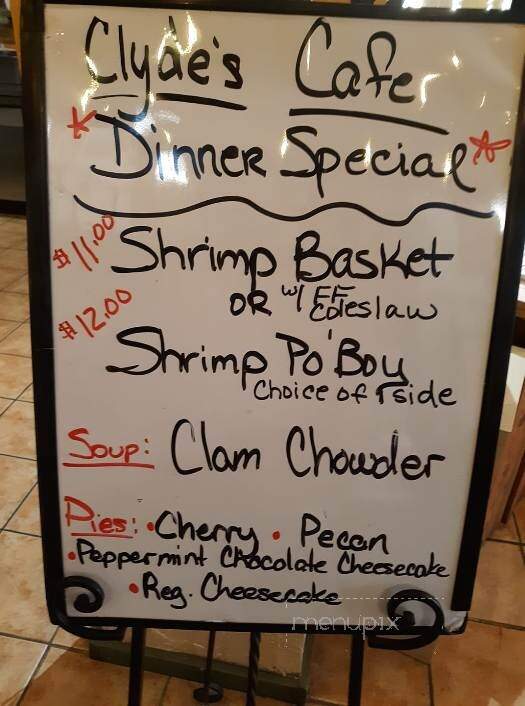 Clyde's Cafe
* Dinner Special *
$11.00 Shrimp Basket
OR w/ FF
Coleslaw
$12.00
Shrimp Po'Boy
Choice of 1 side
Soup: Clam Chowder
Pies: • Cherry • Pecan
• Peppermint Chocolate Cheesecake
• Reg. Cheesecake
menupix